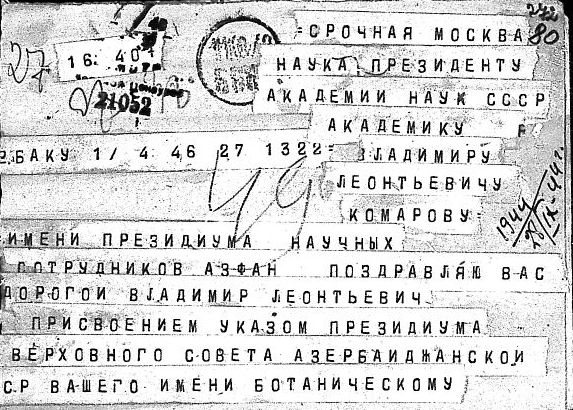 242
80
27
16 40
21052
=СРОЧНАЯ МОСКВА
НАУКА ПРЕЗИДЕНТУ
АКАДЕМИИ НАУК СССР
АКАДЕМИКУ
БАКУ 1/ 4 46 27 1322=
ВЛАДИМИРУ
ЛЕОНТЬЕВИЧУ
КОМАРОВУ=
49
1944
28/IX-44 г.
ИМЕНИ ПРЕЗИДИУМА НАУЧНЫХ
СОТРУДНИКОВ АЗФАН ПОЗДРАВЛЯЮ ВАС
ДОРОГОЙ ВЛАДИМИР ЛЕОНТЬЕВИЧ
ПРИСВОЕНИЕМ УКАЗОМ ПРЕЗИДИУМА
ВЕРХОВНОГО СОВЕТА АЗЕРБАИДЖАНСКОЙ
ССР ВАШЕГО ИМЕНИ БОТАНИЧЕСКОМУ